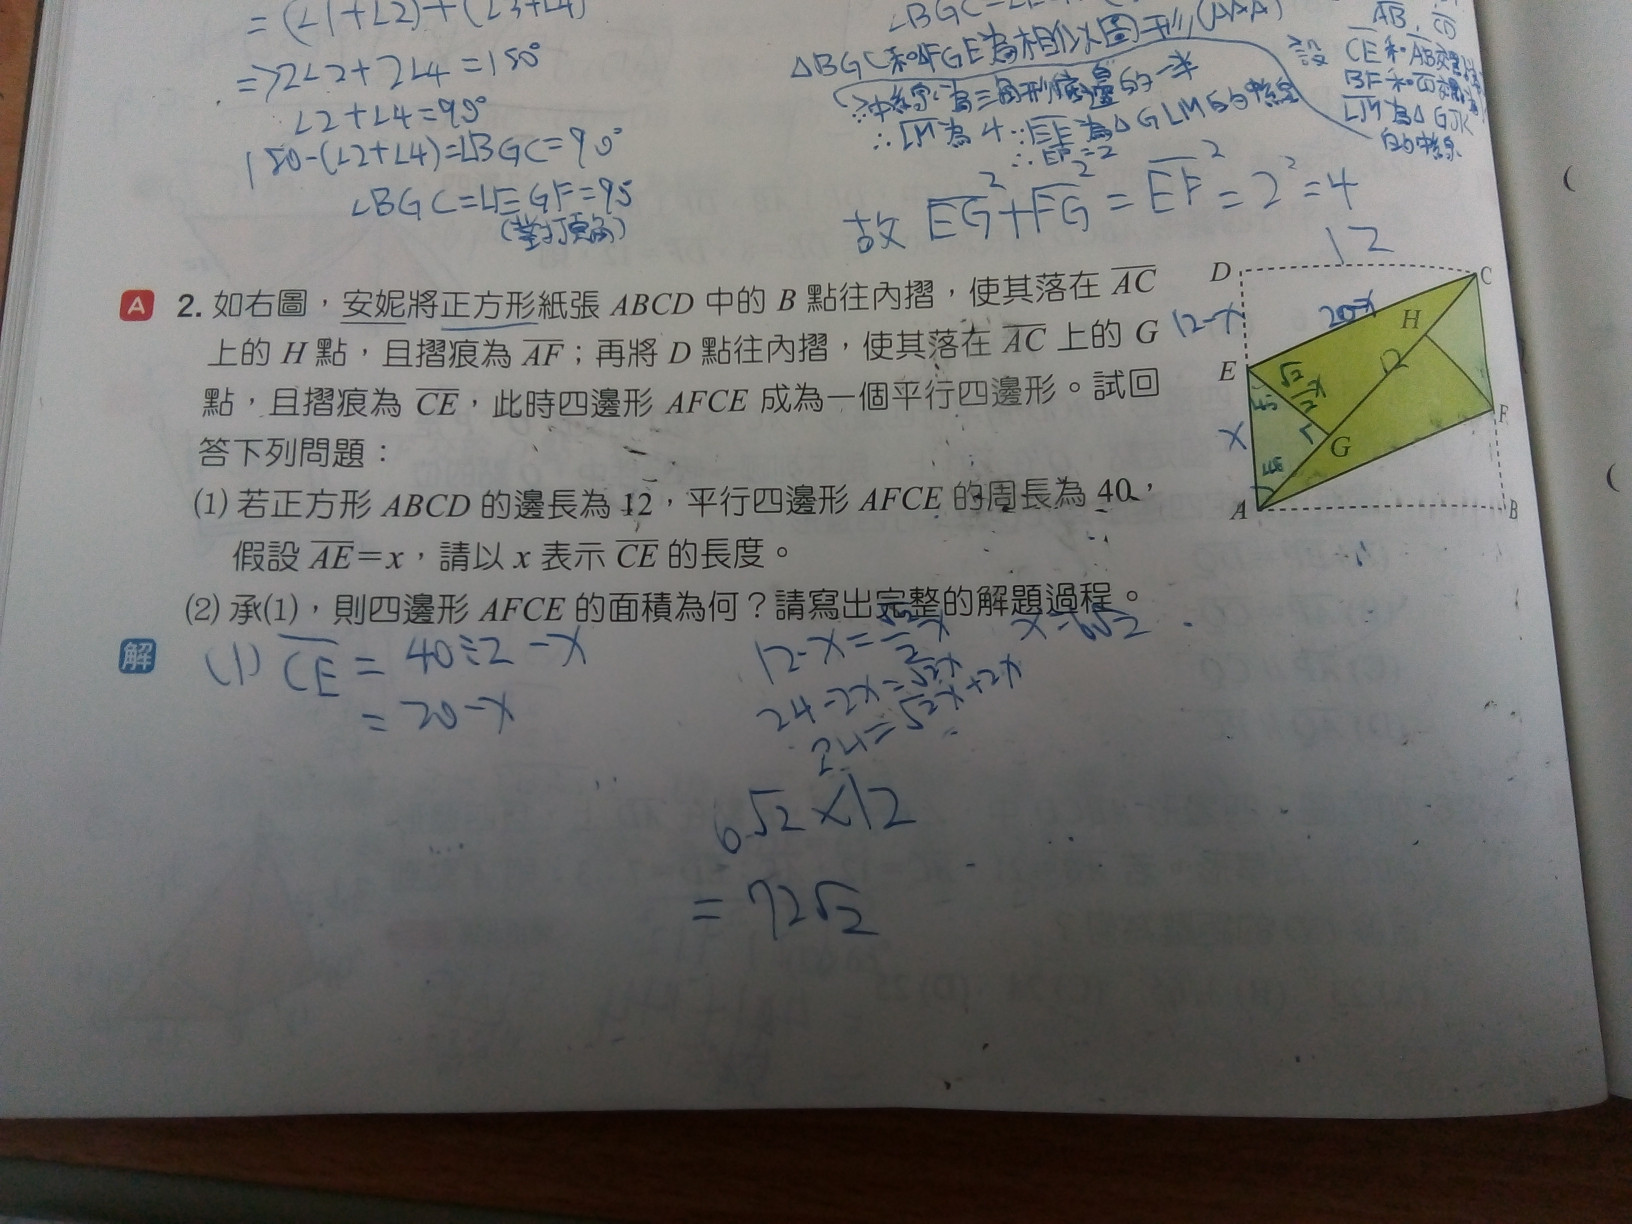 =(∠1+∠2)+(∠3+∠4)
=>2∠2+2∠4=180°
∠2+∠4=90°
180-(∠2+∠4)=∠BGC=90°
∠BGC=∠EGF=90
(對頂角)
∠BGC=∠E
△BGC和△FGE為相似圖形(AAA)
中線為三角形底邊的一半
∴LM為4 ∵EF為△GLM的中線
∴EF=2
AB, CD
設 CE和AB交
BF和CD交
LM為△GJK
的中線
故 EG²+FG²=EF²=2²=4
A 2. 如右圖，安妮將正方形紙張 ABCD 中的 B 點往內摺，使其落在 AC
上的 H 點，且摺痕為 AF；再將 D 點往內摺，使其落在 AC 上的 G
點，且摺痕為 CE，此時四邊形 AFCE 成為一個平行四邊形。試回
答下列問題：
(1) 若正方形 ABCD 的邊長為 12，平行四邊形 AFCE 的周長為 40，
假設 AE=x，請以 x 表示 CE 的長度。
(2) 承(1)，則四邊形 AFCE 的面積為何？請寫出完整的解題過程。
12
D
C
12-x
20-x
H
E
x
G
F
A
B
解
(1) CE = 40÷2-x
= 20-x
12-x=√2x/2
24-2x=√2x
24=√2x+2x
x=6√2
6√2×12
=72√2